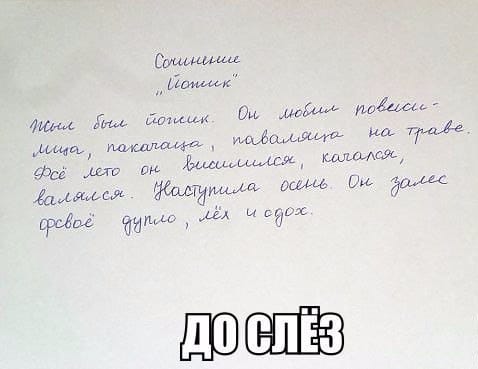 Сочинение
„Йожик"
Жыл был йожик. Он любил повеси-
лица, пакачаца, паваляца на траве.
Фсё лето он висилился, качался,
валялся. Наступила осень. Он залес
фсваё дупло, лёх и одох.
ДО СЛЁЗ